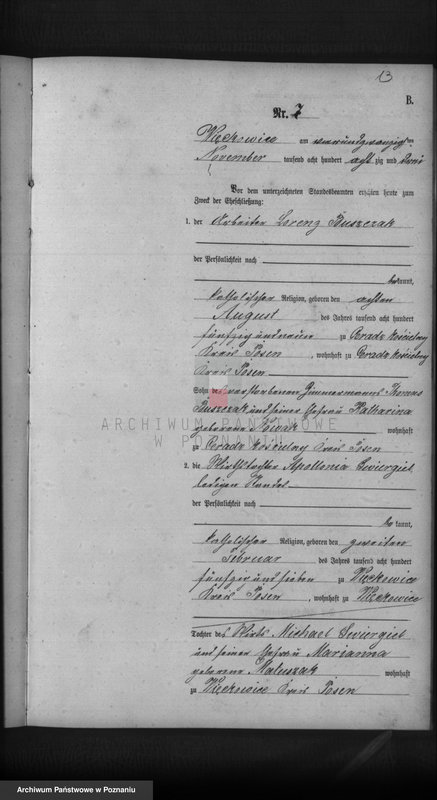 13
B.
Nr. 7
Więckowice am vierundzwanzigsten
November tausend acht hundert achtzig und drei
Vor dem unterzeichneten Standesbeamten erschienen heute zum
Zweck der Eheschließung:
1. der Arbeiter Lorenz Ruszczak
der Persönlichkeit nach
kannt,
katholischer Religion, geboren den achten
August des Jahres tausend acht hundert
fünfzig und neun zu Ceradz kościelny
Kreis Posen, wohnhaft zu Ceradz kościelny
Kreis Posen
Sohn des verstorbenen Zimmermanns Thomas
Ruszczak und seiner Ehefrau Katharina
geborene Nowak wohnhaft
zu Ceradz kościelny Kreis Posen
2. die Wirthstochter Apollonia Swiergiel
ledigen Standes
der Persönlichkeit nach
kannt,
katholischer Religion, geboren den zweiten
Februar des Jahres tausend acht hundert
fünfzig und sieben zu Więckowice
Kreis Posen, wohnhaft zu Więckowice
Tochter des Wirths Michael Swiergiel
und seiner Ehefrau Marianna
geborene Matuszak wohnhaft
zu Więckowice Kreis Posen
ARCHIWUM PAŃSTWOWE
W POZNANIU
Archiwum Państwowe w Poznaniu